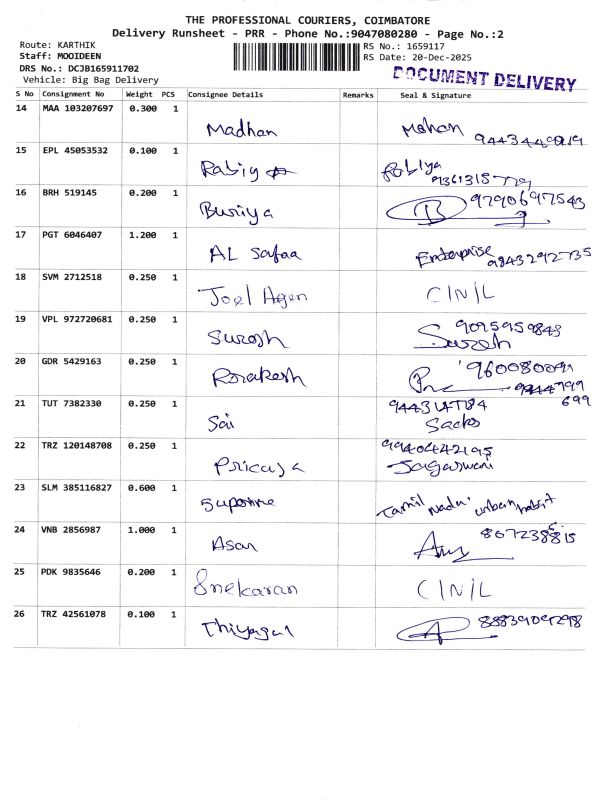 THE PROFESSIONAL COURIERS, COIMBATORE
Delivery Runsheet - PRR - Phone No.:9047080280 - Page No.:2
Route: KARTHIK
RS No.: 1659117
Staff: MOOIDEEN
RS Date: 20-Dec-2025
DRS No.: DCJB165911702
DOCUMENT DELIVERY
Vehicle: Big Bag Delivery
S No Consignment No Weight PCS Consignee Details Remarks Seal & Signature
14 MAA 103207697 0.300 1
Madhan Mohan
15 EPL 45053532 0.100 1
Rabiya
16 BRH 519145 0.200 1
9790697543
17 PGT 6046407 1.200 1
AL Safaa Enterprise 9843292735
18 SVM 2712518 0.250 1
Joel Agen CINIL
19 VPL 972720681 0.250 1
9095959843
Suresh Suresh
20 GDR 5429163 0.250 1
21 TUT 7382330 0.250 1
Sai Sacks
22 TRZ 120148708 0.250 1
9940442195
23 SLM 385116827 0.600 1
Tamil Nadu urban habit
24 VNB 2856987 1.000 1
Asan
25 PDK 9835646 0.200 1
Snekaran CINIL
26 TRZ 42561078 0.100 1
Thiyagal